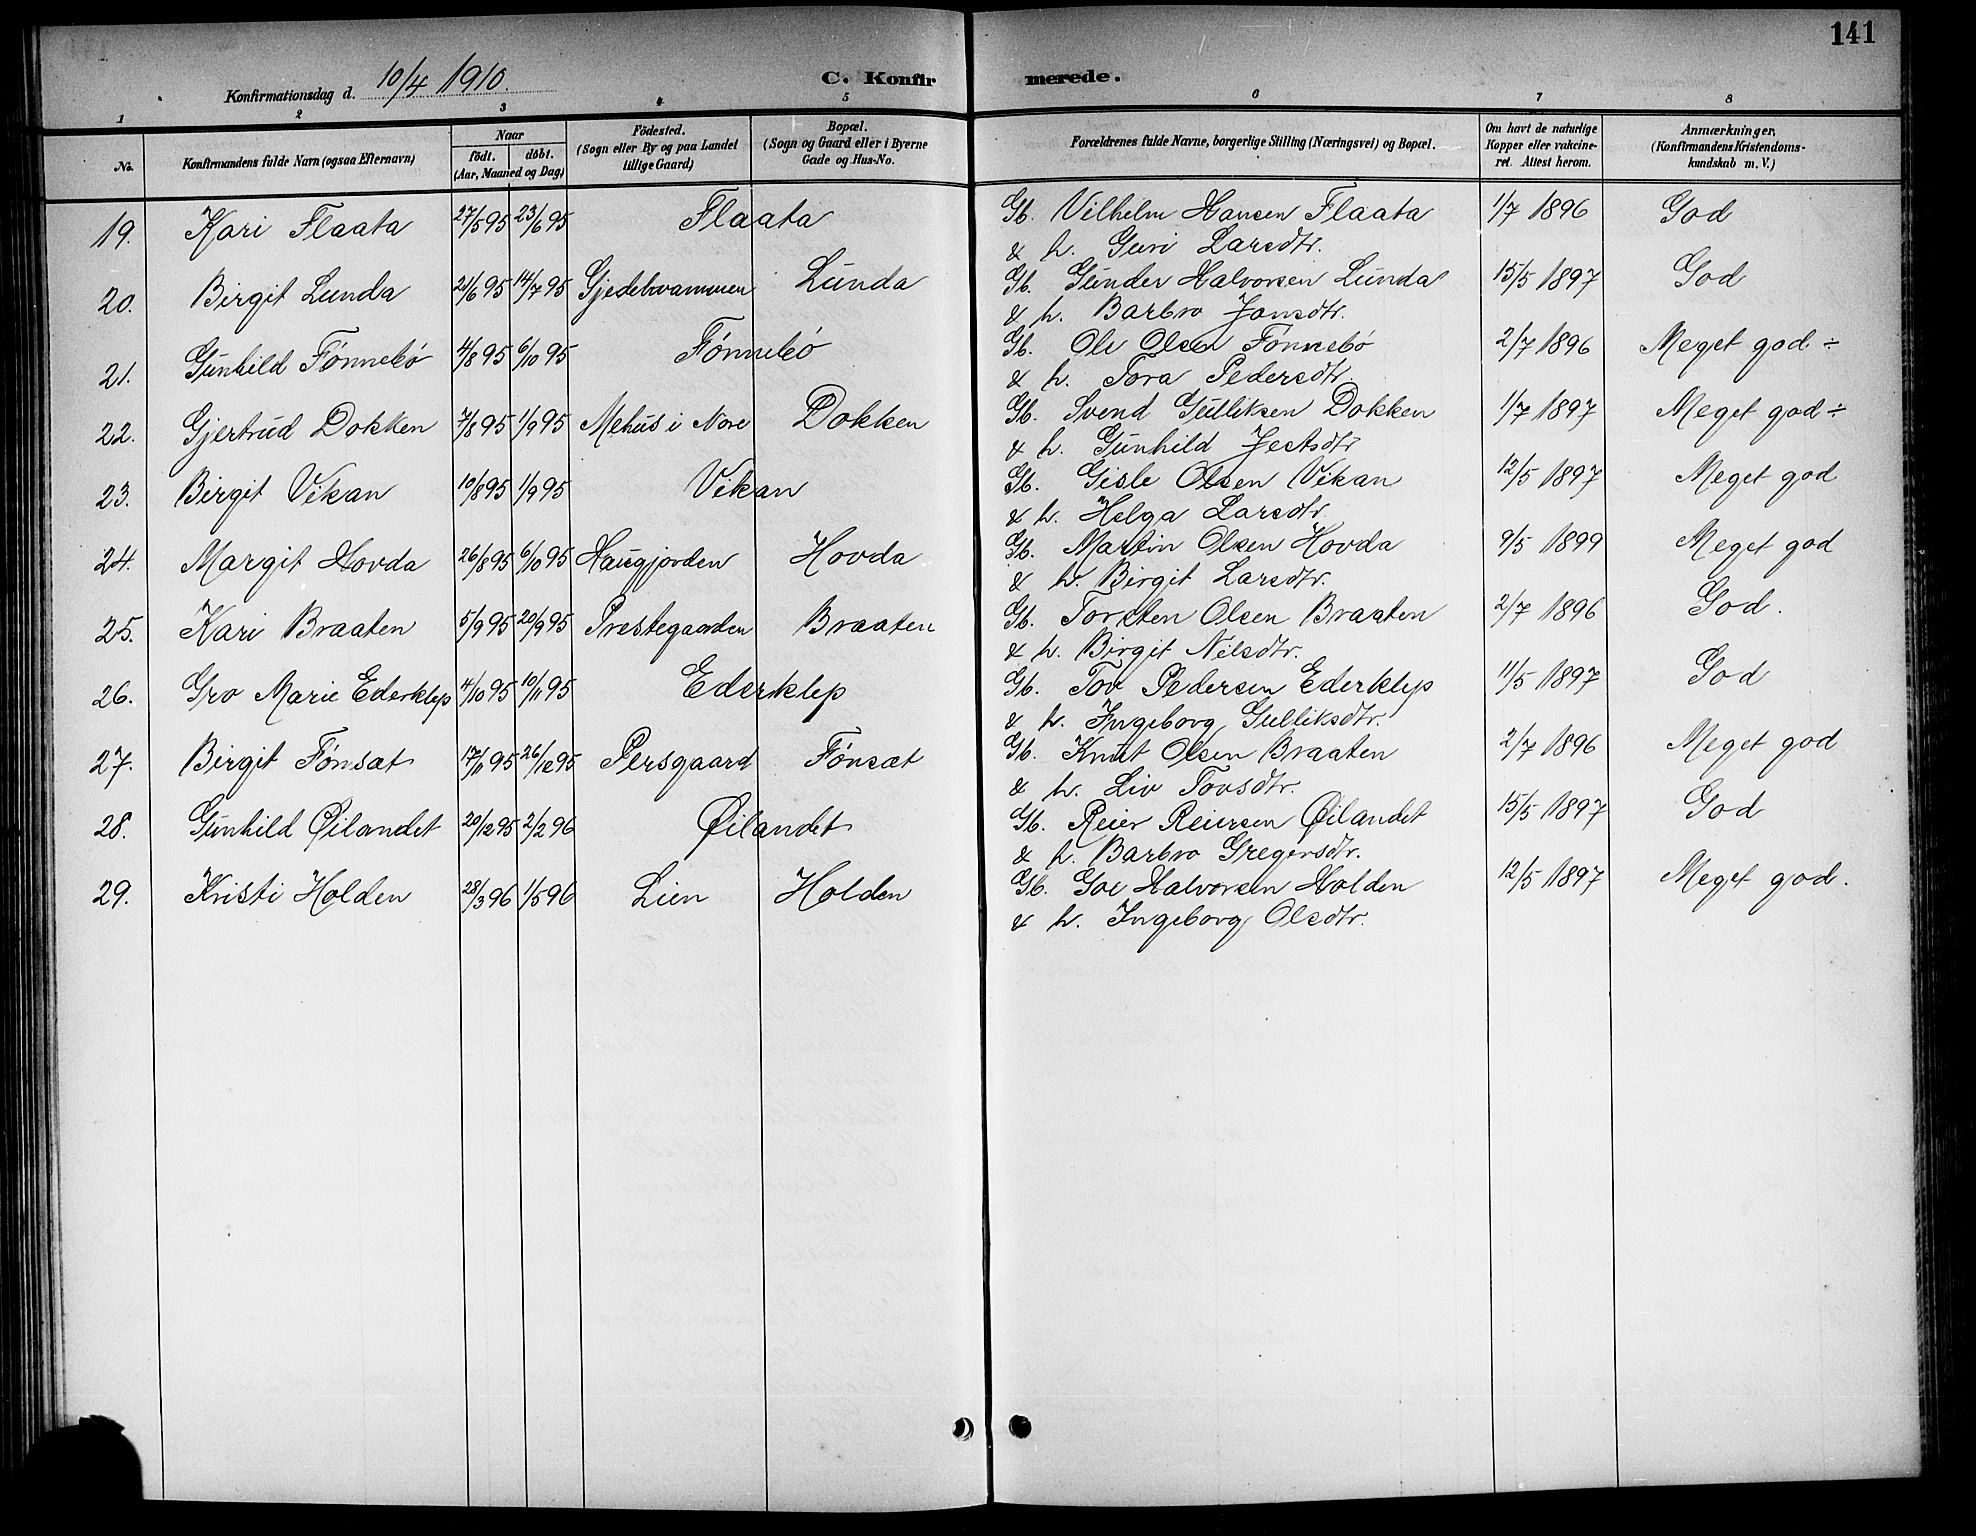 141
Konfirmationsdag d. 10/4 1910.
C. Konfirmerede.
1 2 3 4 5 6 7 8
No.
Konfirmandens fulde Navn (ogsaa Efternavn)
Naar
födt. döbt.
(Aar, Maaned og Dag)
Födested.
(Sogn eller By og paa Landet
tillige Gaard)
Bopæl.
(Sogn og Gaard eller i Byerne
Gade og Hus-No.
Forældrenes fulde Navne, borgerlige Stilling (Næringsvei) og Bopæl.
Om havt de naturlige
Kopper eller vakcine-
ret. Attest herom.
Anmærkninger,
(Konfirmandens Kristendoms-
kundskab m. V.)
19. Kari Flaata 27/5 95 23/6 95 Flaata Gb. Vilhelm Hansen Flaata 1/7 1896 God
& h. Guri Larsdtr.
20. Birgit Lunda 21/6 95 14/7 95 Gjedehvammen Lunda Gb. Gunder Halvorsen Lunda 15/5 1897 God
& h. Barbro Jonsdtr.
21. Gunhild Fønnebø 4/8 95 6/10 95 Fønnebø Gb. Ole Olsen Fønnebø 2/7 1896 Meget god ÷
& h. Tora Pedersdtr.
22. Gjertrud Dokken 7/8 95 1/9 95 Mehus i Nore Dokken Gb. Svend Gulliksen Dokken 1/7 1897 Meget god ÷
& h. Gunhild Jestsdtr
23. Birgit Vikan 10/8 95 1/9 95 Vikan Gb. Gisle Olsen Vikan 12/5 1897 Meget god
& h. Helga Larsdtr.
24. Margit Hovda 26/8 95 6/10 95 Haugjorden Hovda Gb. Martin Olsen Hovda 9/5 1899 Meget god
& h. Birgit Larsdtr.
25. Kari Braaten 5/9 95 20/9 95 Prestegaarden Braaten Gb. Torsten Olsen Braaten 2/7 1896 God.
& h. Birgit Nilsdtr.
26. Gro Marie Ederklep 4/10 95 10/11 95 Ederklep Gb. Tov Pedersen Ederklep 11/5 1897 God
& h. Ingeborg Gulliksdtr.
27. Birgit Fønsæt 17/11 95 26/12 95 Persgaard Fønsæt Gb. Knut Olsen Braaten 2/7 1896 Meget god
& h. Liv Tovsdtr.
28. Gunhild Øilandet 20/12 95 2/2 96 Øilandet Gb. Reier Reiersen Øilandet 15/5 1897 God
& h. Barbro Gregersdtr.
29. Kristi Holden 28/3 96 1/5 96 Lien Holden Gb. Goe Halvorsen Holden 12/5 1897 Meget god.
& h. Ingeborg Olsdtr.